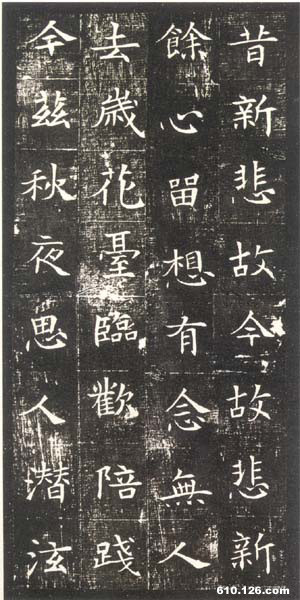 昔新悲故今故悲新
餘心留想有念無人
去歲花臺臨歡陪踐
今茲秋夜思人潛泫
610.126.com